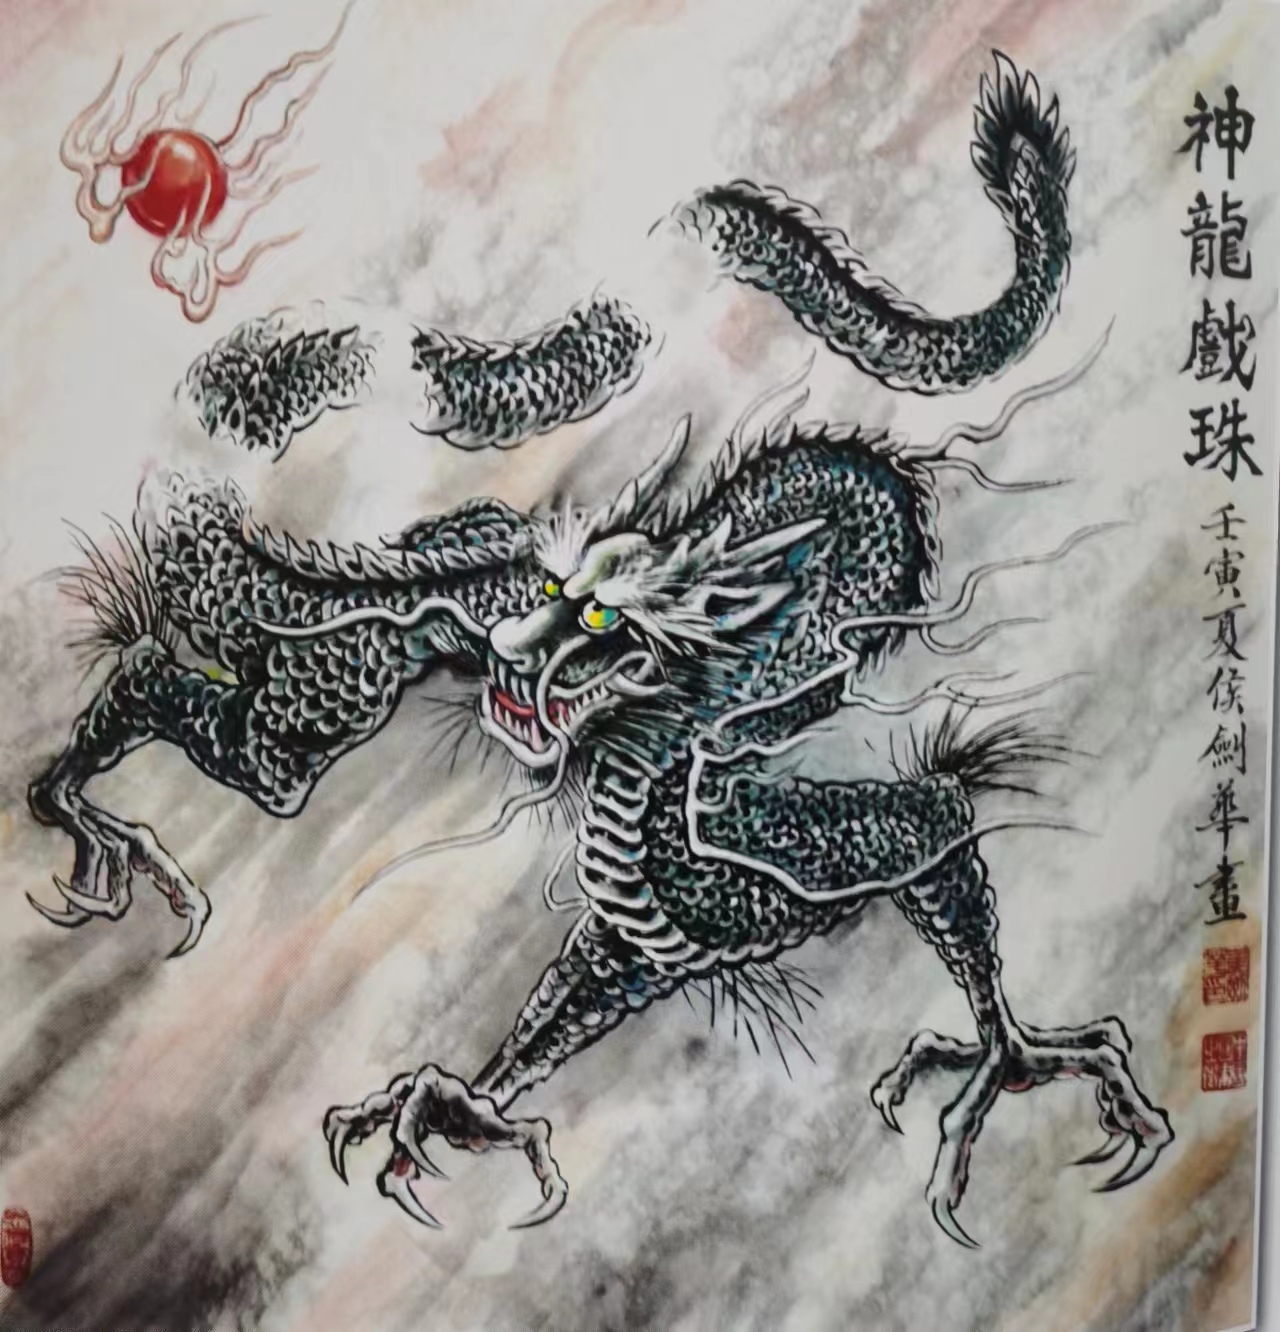 神龍戲珠
壬寅夏侯劍華畫